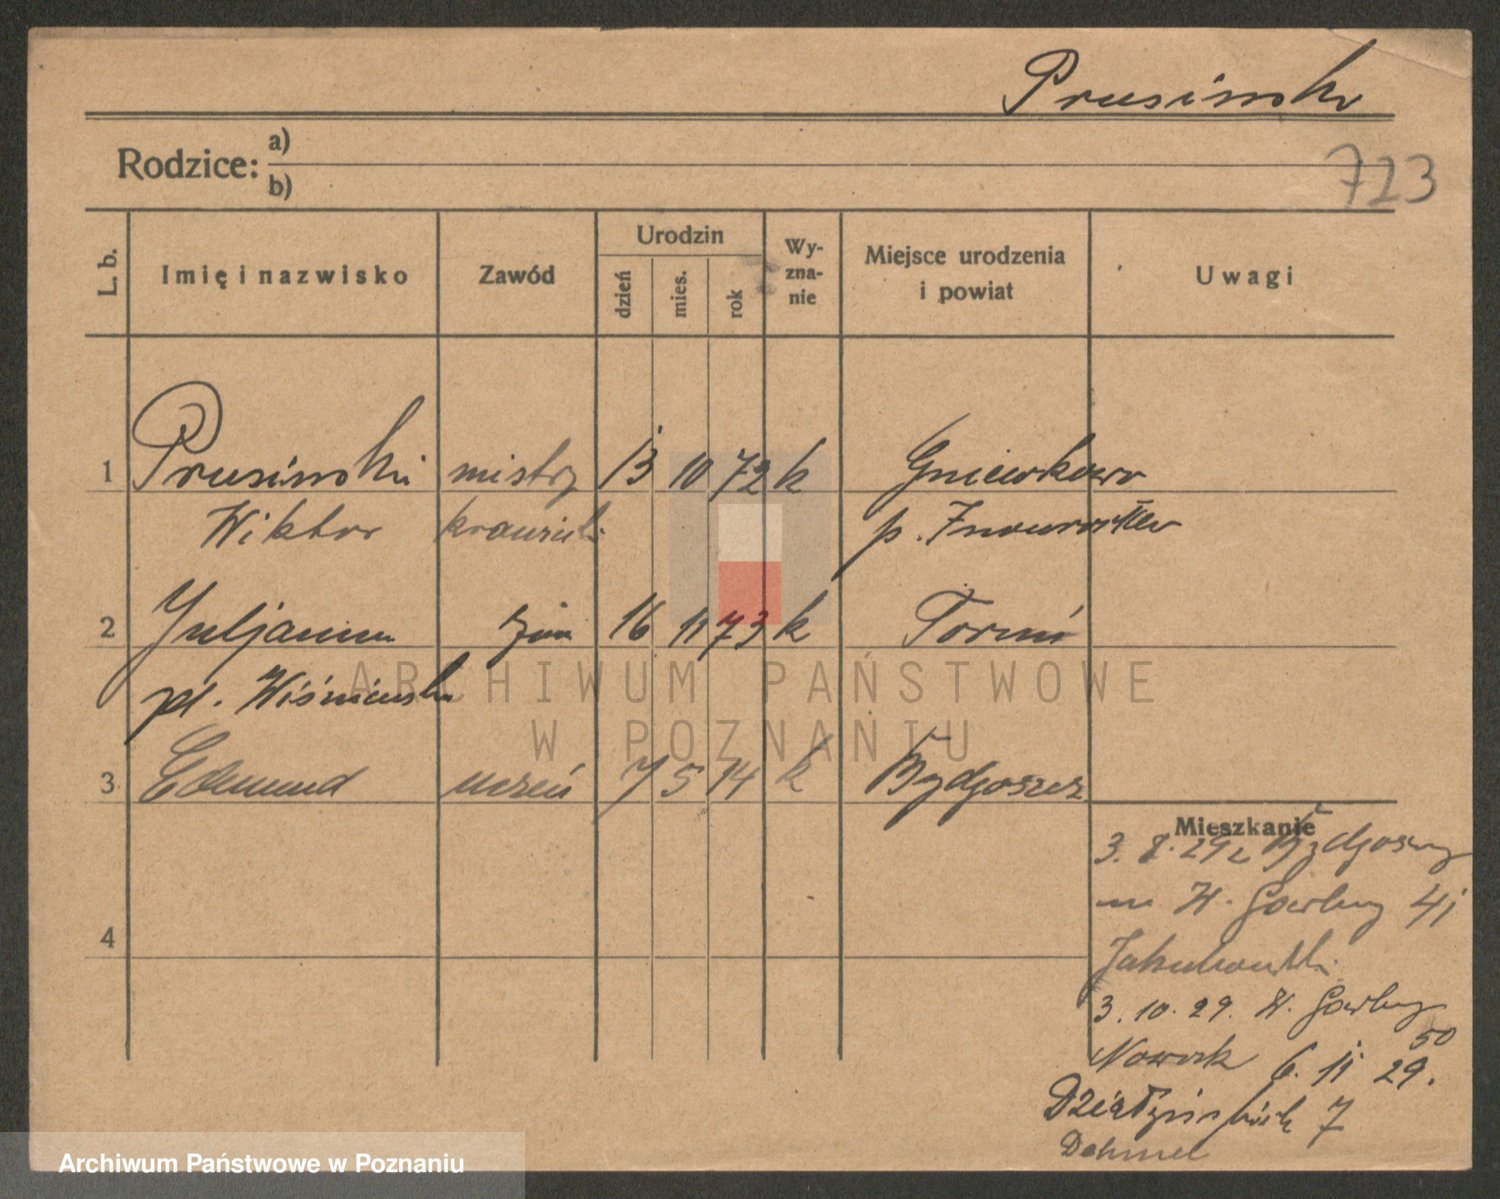 Prusinski
Rodzice: a)
b)
723
L. b.
Imię i nazwisko
Zawód
Urodzin
dzień
mies.
rok
Wy-
zna-
nie
Miejsce urodzenia
i powiat
Uwagi
1 Prusinski mistrz 13 10 72 k Gniewkowo
Wiktor krawiecki p. Inowrocław
2 Juljanna żona 16 11 73 k Toruń
pd. Wiśniewska
3 Edmund uczeń 7 5 14 k Bydgoszcz
Mieszkanie
3. 8. 29 z Bydgoszczy
na W. Garbary 41
Jakubowski
3. 10. 29. W. Garbary
50
Nowack 6. 11 29.
Działyńskich 7
Dehmel
4
ARCHIWUM PAŃSTWOWE
W POZNANIU
Archiwum Państwowe w Poznaniu